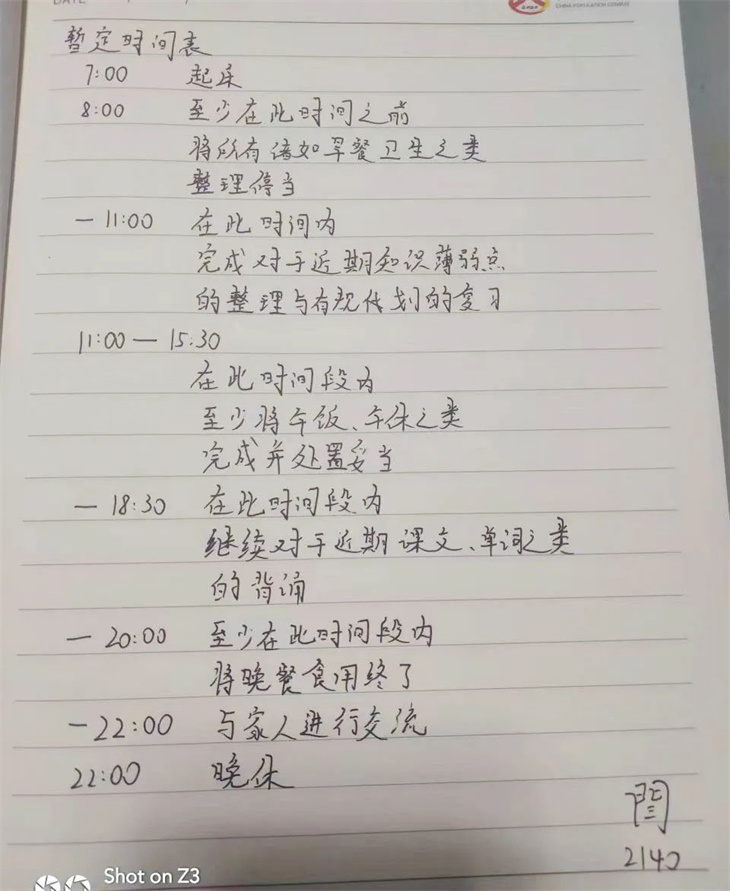 DATE / /
CHINA POPULATION CENSUS
暂定时间表
7:00 起床
8:00 至少在此时间之前
将所有诸如早餐卫生之类
整理停当
— 11:00 在此时间内
完成对于近期知识薄弱点
的整理与有规计划的复习
11:00 — 15:30
在此时间段内
至少将午饭、午休之类
完成并处置妥当
— 18:30 在此时间段内
继续对于近期课文、单词之类
的背诵
— 20:00 至少在此时间段内
将晚餐食用终了
— 22:00 与家人进行交流
22:00 晚休
2140
Shot on Z3